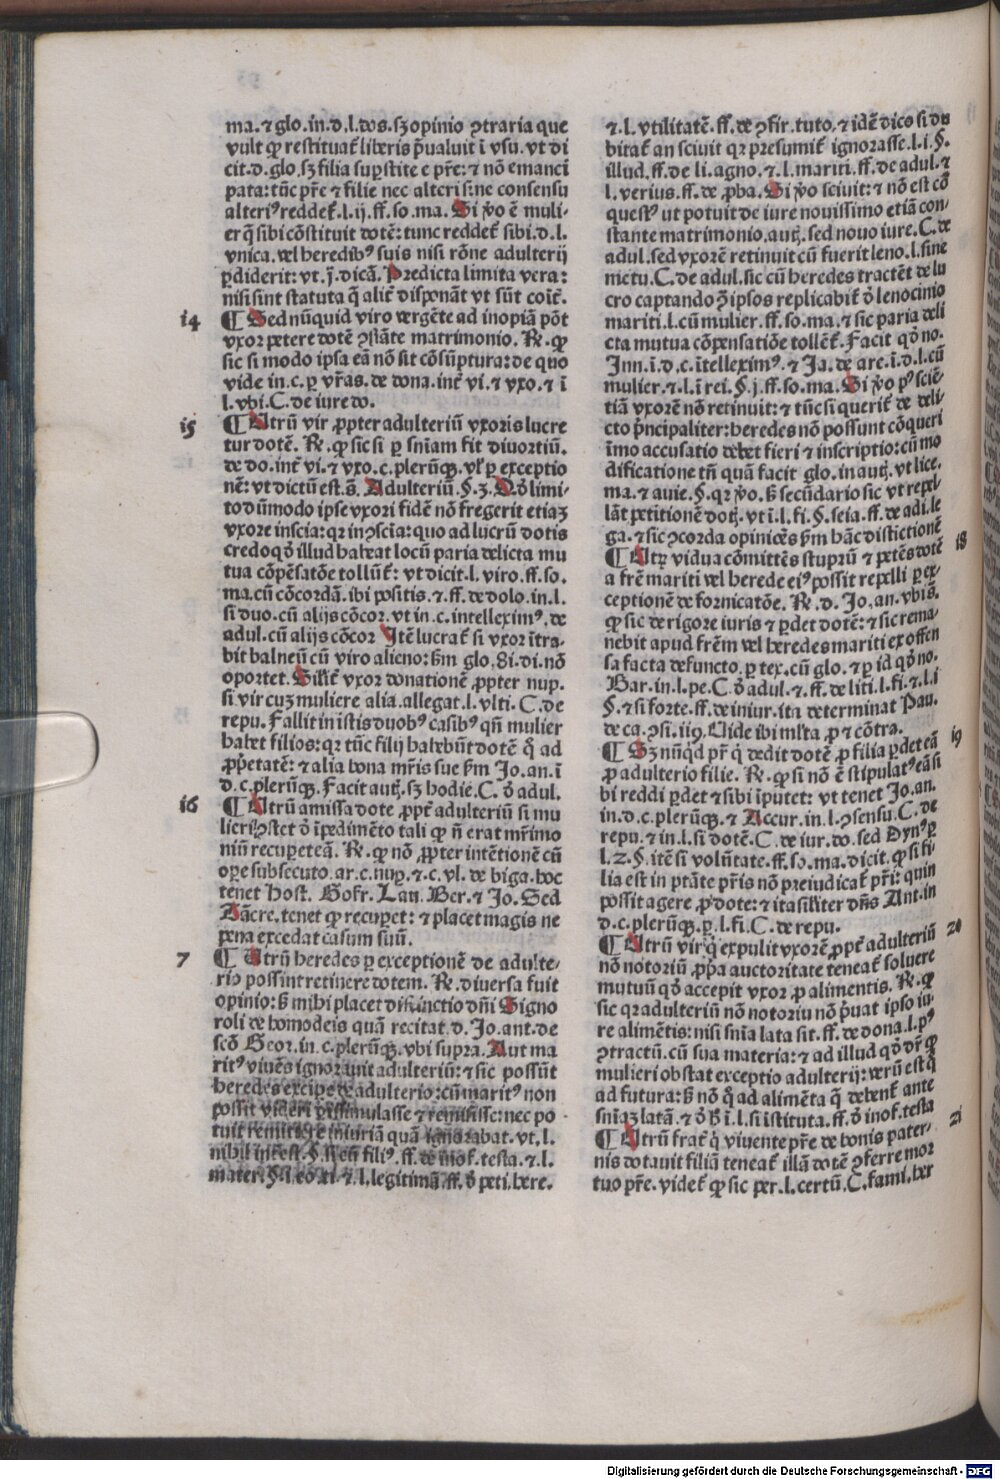 ma. ⁊ glo. in. d. l. dos. sꝫ opinio ꝯtraria que
vult ꝙ restituat᷑ liberis p̄ualuit ī vsu. vt di
cit. d. glo. sꝫ filia suꝑstite e pr̄e: ⁊ nō emanci
pata: tūc pr̄e ⁊ filie nec alteri sine consensu
alteri⁹ reddet᷑. l. ij. ff. so. ma. Si ꝟo ē muli-
er q̄ sibi cōstituit dotē: tunc reddet᷑ sibi. d. l.
vnica. vel heredib⁹ suis nisi rōne adulterij
ꝑdiderit: vt. j. dicā. Predicta limita vera:
nisi sint statuta q̄ alit᷑ disponāt vt sūt coīt᷑.
14 ¶ Sed nūquid viro vergēte ad inopiā pōt
vxor petere dotē ꝯstāte matrimonio. ℞. ꝙ
sic si modo ipsa eā nō sit cōsūptura: de quo
vide in. c. ꝑ vr̄as. de dona. int᷑ vi. ⁊ vxo. ⁊ ī
l. vbi. C. de iure do.
15 ¶ Utrū vir ꝓpter adulteriū vxoris lucre
tur dotē. ℞. ꝙ sic si ꝑ sn̄iam fit diuortiū.
de do. int᷑ vi. ⁊ vxo. c. plerūqꝫ. vl̓ ꝑ exceptio
nē: vt dictū est. s̄. Adulteriū. §. 3. Qd̓ limi-
to dūmodo ipse vxori fidē nō fregerit etiaꝫ
vxore inscia: qꝛ in ꝯscīa: quo ad lucrū dotis
credo qd̓ illud habeat locū paria delicta mu
tua cōpēsatōe tollūt᷑: vt dicit. l. viro. ff. so.
ma. cū cōcordā. ibi positis. ⁊. ff. de dolo. in. l.
si duo. cū alijs cōcor. vt in. c. intellexim⁹. de
adul. cū alijs cōcor Itē lucrat᷑ si vxor ītra-
bit balneū cū viro alieno: ẜm glo. 8i. di. nō
oportet. Silit᷑ vxor donationē ꝓpter nup.
si vir cuꝫ muliere alia. allegat. l. vlti. C. de
repu. Fallit in istis duob⁹ casib⁹ qn̄ mulier
habet filios: qꝛ tūc filij habebūt dotē q̊ ad
ꝓp̓etatē: ⁊ alia bona mr̄is sue ẜm Jo. an. ī
d. c. plerūqꝫ. Facit autꝫ. sꝫ hodie. C. d̓ adul.
16 ¶ Utrū amissa dote ꝓpt᷑ adulteriū si mu
lieri ꝯstet d̓ īpedimēto tali ꝙ n̄ erat mr̄imo
niū recuꝑet eā. ℞. ꝙ nō ꝓpter intētionē cū
oꝑe subsecuto. ar. c. nuꝑ. ⁊. c. vl. de biga. hoc
tenet Host. Gofr. Lau. Ber. ⁊ Jo. Sed
Tācre. tenet ꝙ recuꝑet: ⁊ placet magis ne
pena excedat casum suū.
7 ¶ Utrū heredes ꝑ exceptionē de adulte-
rio possint retinere dotem. ℞. diuersa fuit
opinio: ẜ mihi placet distinctio dn̄i Signo
roli de homodeis quā recitat. d. Jo. ant. de
scō Geor. in. c. plerūqꝫ. vbi supra. Aut ma
rit⁹ viuēs ignorauit adulteriū: ⁊ sic possūt
heredes excipe de adulterio: cū marit⁹ non
possit videri dissimulasse ⁊ remisisse: nec po
tuit remittere iniuriā quā ignorabat. vt. l.
nihil int᷑est. §. si eū fili⁹. ff. de inof. testa. ⁊. l.
mater. §. l. eo. ti. ⁊. l. legitimā. ff. d̓ peti. here.
⁊. l. vtilitatē. ff. de ꝯfir. tuto. ⁊ idē dico si du
bitat᷑ an sciuit qꝛ presumit᷑ ignorasse. l. i. §.
illud. ff. de li. agno. ⁊. l. mariti. ff. de adul. ⁊
l. verius. ff. de ꝓba. Si ꝟo sciuit: ⁊ nō est cō
quest⁹ ut potuit de iure nouissimo etiā con-
stante matrimonio. autꝫ. sed nouo iure. C. de
adul. sed vxorē retinuit cū fuerit leno. l. sine
metu. C. de adul. sic cū heredes tractēt de lu
cro captando ꝯ̄ ipsos replicabit᷑ d̓ lenocinio
mariti. l. cū mulier. ff. so. ma. ⁊ sic paria deli
cta mutua cōpensatiōe tollēt᷑. Facit qd̓ no.
Inn. ī. d. c. ītellexim⁹. ⁊ Ja. de are. ī. d. l. cū
mulier. ⁊. l. ī rei. §. j. ff. so. ma. Si ꝟo p⁹ sciē-
tiā vxorē nō retinuit: ⁊ tūc si querit᷑ de deli-
cto p̄ncipaliter: heredes nō possunt cōqueri
īmo accusatio debet fieri ⁊ inscriptio: cū mo
dificatione tn̄ quā facit glo. in autꝫ. vt lice.
ma. ⁊ auie. §. qꝛ ꝟo. ẜ secūdario sic vt repel
lāt petitionē dotꝭ. vt ī. l. fi. §. seia. ff. de adi. le
ga. ⁊ sic ꝯcorda opiniōes ẜm hāc distīctionē
18 ¶ Utꝝ vidua cōmittēs stuprū ⁊ petēs dotē
a frē mariti vel herede ei⁹ possit repelli ꝑ ex-
ceptionē de fornicatōe. ℞. d. Jo. an. vbi s̄.
ꝙ sic de rigore iuris ⁊ ꝑdet dotē: ⁊ sic rema-
nebit apud frēm vel heredes mariti ex offen
sa facta defuncto. ꝑ tex. cū glo. ⁊ ꝑ id qd̓ no.
Bar. in. l. pe. C. d̓ adul. ⁊. ff. de liti. l. fi. ⁊. l. i
§. ⁊ si forte. ff. de iniur. ita determinat Pau.
de ca. ꝯsi. 119. Uide ibi ml̓ta ꝓ ⁊ cōtra.
19 ¶ Sꝫ nūqd pr̄ q̇ dedit dotē ꝓ filia ꝑdet eā
ꝓ adulterio filie. ℞. ꝙ si nō ē stipulat⁹ eā si
bi reddi ꝑdet ⁊ sibi īputet: vt tenet Jo. an.
in. d. c. plerūqꝫ. ⁊ Accur. in. l. ꝯsensu. C. de
repu. ⁊ in. l. si dotē. C. de iur. do. sed Dyn⁹ ꝑ
l. 2. §. itē si volūtate. ff. so. ma. dicit. ꝙ si fi-
lia est in ptāte pr̄is nō preiudicat᷑ pr̄i: quin
possit agere ꝓ dote: ⁊ ita silīter dn̄s Ant. in
d. c. plerūqꝫ. ꝑ. l. fi. C. de repu.
20 ¶ Utrū vir q̇ expulit vxorē ꝓpt᷑ adulteriū
nō notoriū ꝓpa auctoritate teneat᷑ soluere
mutuū qd̓ accepit vxor ꝓ alimentis. ℞. ꝙ
sic qꝛ adulteriū nō notoriū nō p̄uat ipso iu-
re alimētis: nisi sn̄ia lata sit. ff. de dona. l. p⁹
ꝯtractū. cū sua materia: ⁊ ad illud qd̓ dr̄ ꝙ
mulieri obstat exceptio adulterij: verū est q̊
ad futura: ẜ nō q̊ ad alimēta q̄ debent᷑ ante
sn̄iaꝫ latā. ⁊ d̓ h̓ ī. l. si īstituta. ff. d̓ inof. testa
21 ¶ Utrū frat᷑ q̇ viuente pr̄e de bonis pater-
nis dotauit filiā teneat᷑ illā dotē ꝯferre mor
tuo pr̄e. videt᷑ ꝙ sic per. l. certū. C. fami. her
Digitalisierung gefördert durch die Deutsche Forschungsgemeinschaft - DFG